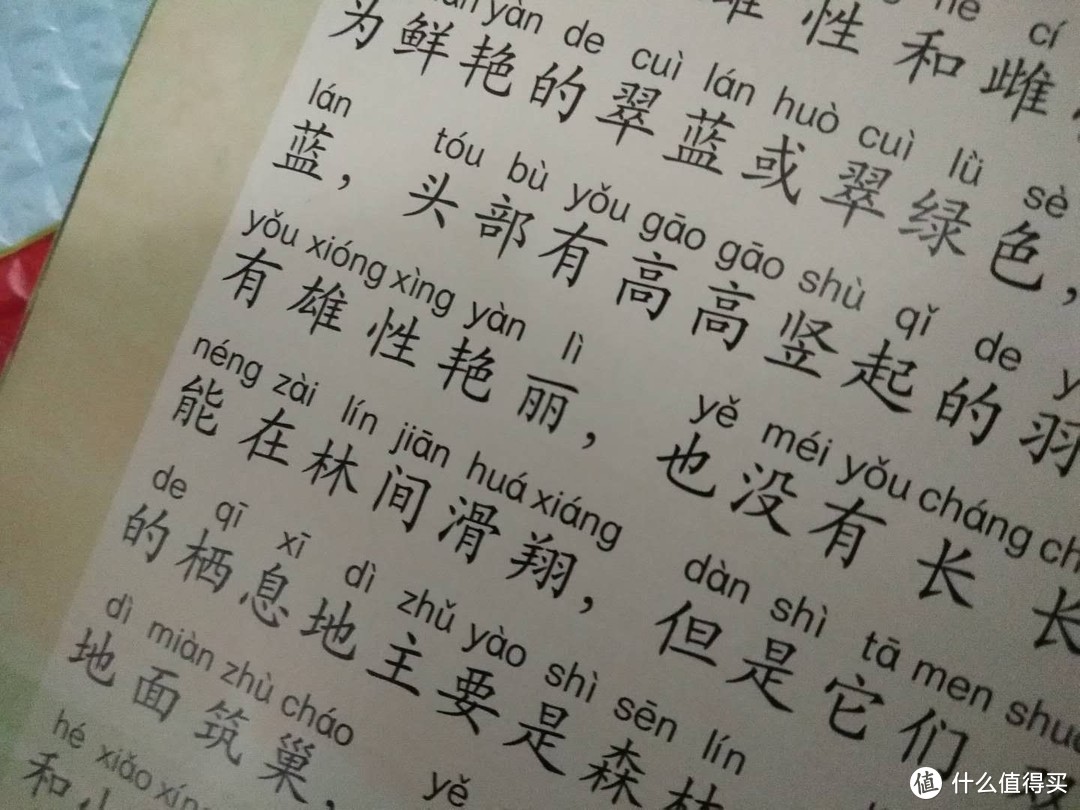 hé cí
性和雌
yàn de cuì lán huò cuì lǜ sè
为鲜艳的翠蓝或翠绿色，
lán tóu bù yǒu gāo gāo shù qǐ de
蓝，头部有高高竖起的羽
yǒu xióng xìng yàn lì yě méi yǒu cháng
有雄性艳丽，也没有长长
néng zài lín jiān huá xiáng dàn shì tā men
能在林间滑翔，但是它们
de qī xī dì zhǔ yào shì sēn lín
的栖息地主要是森林
dì miàn zhù cháo yě
地面筑巢，
hé xiǎo
和小
值 什么值得买